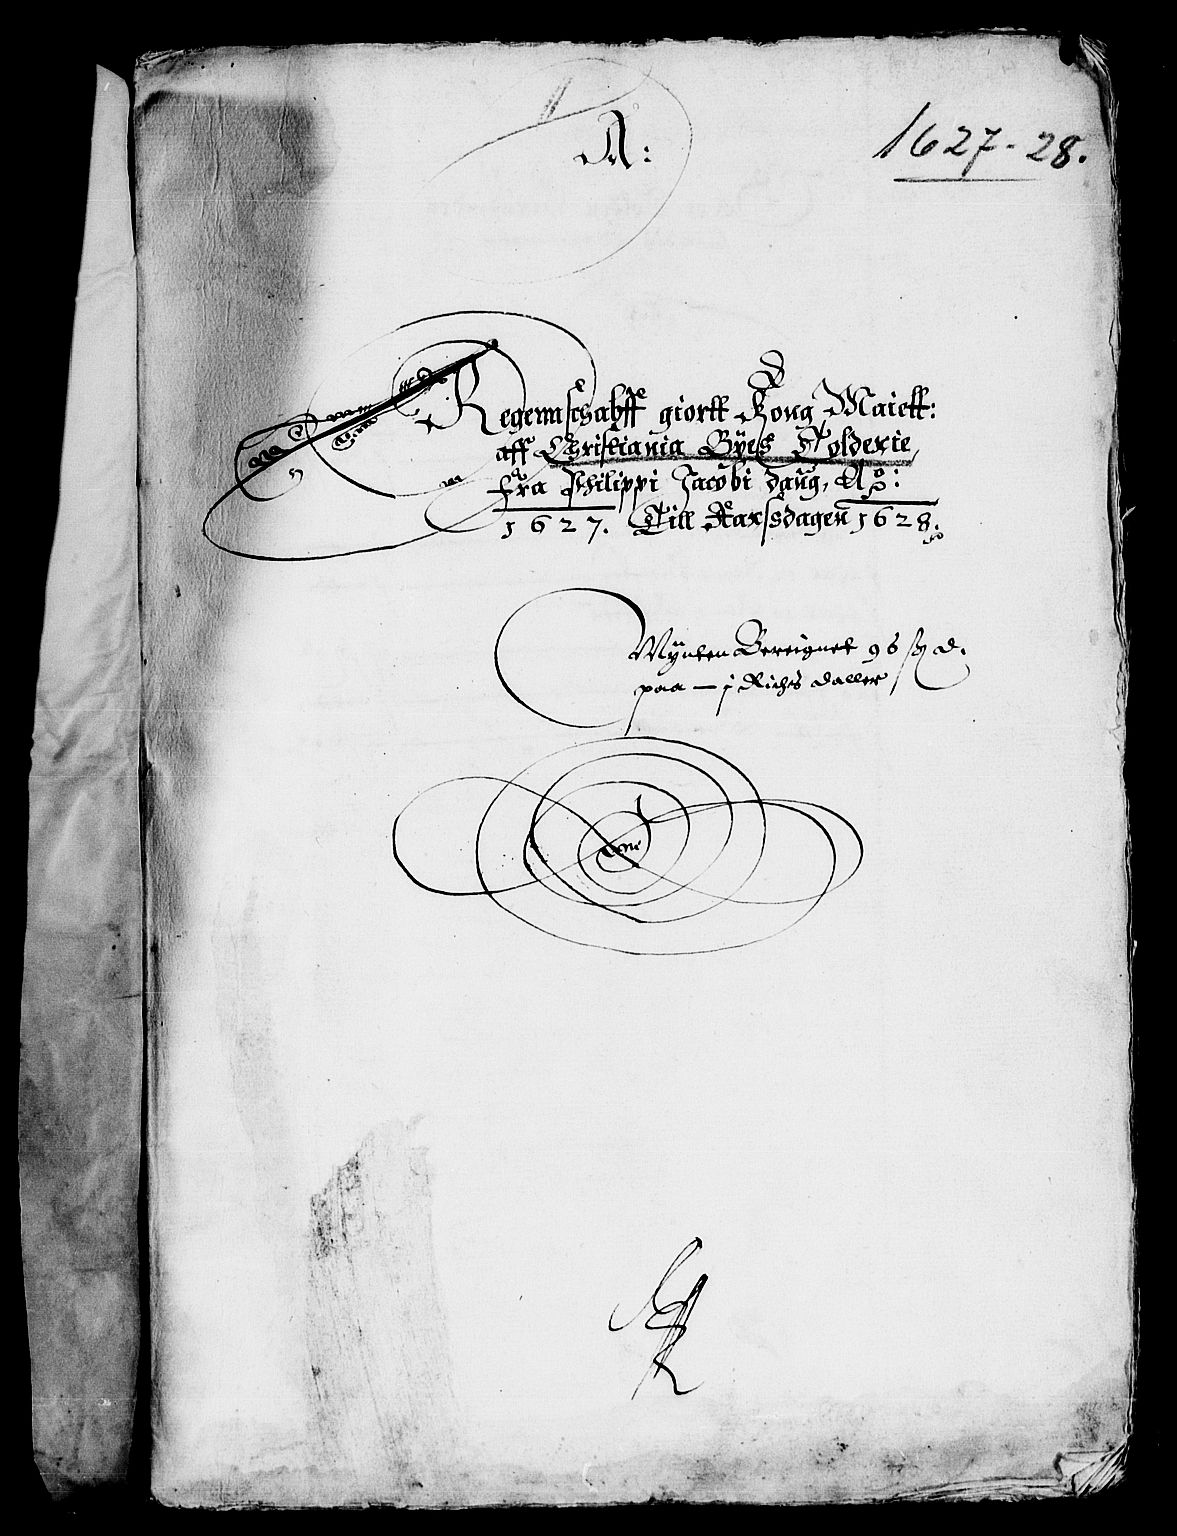 A:
1627-28.
Regennschabff giortt Kong Maiett:
aff Christiania Byes Tolderie,
fra Philippi Jacobi daug, Ao:
1627. Till Aarssdagen 1628.
Mÿnten Bereignet 96 ß d.
paa — j Richs daller